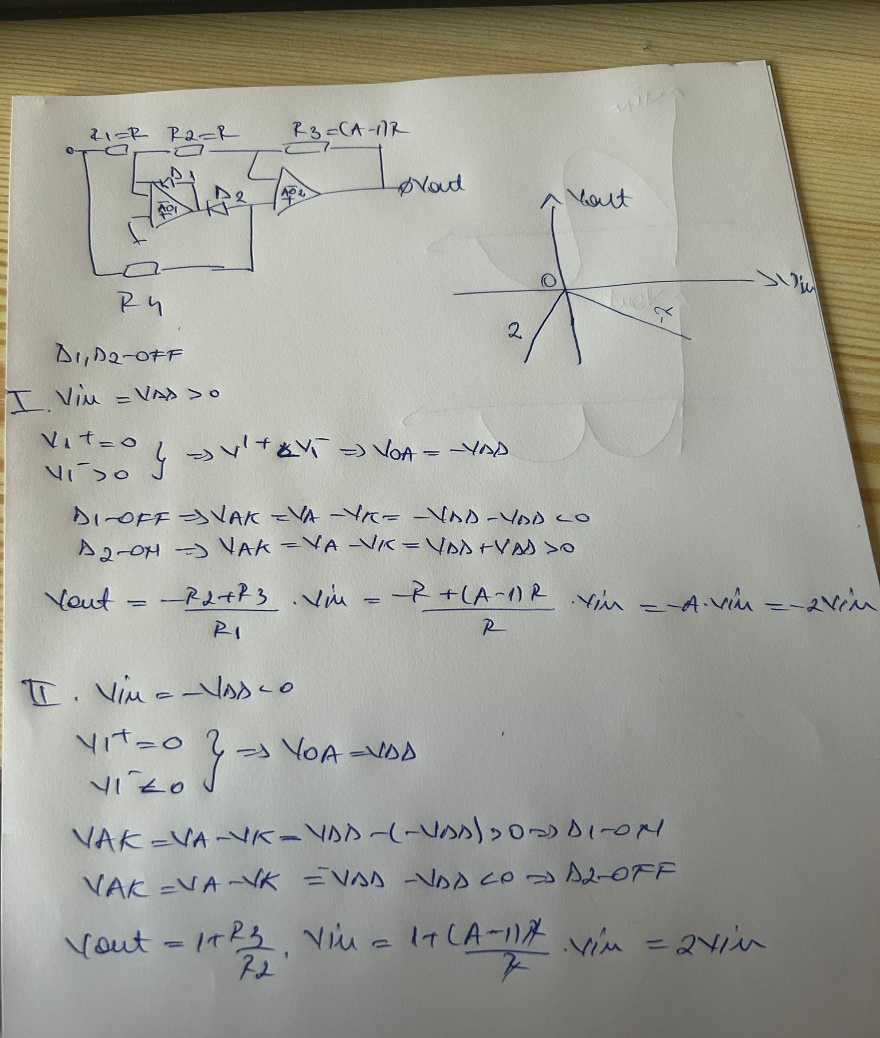 R1=R R2=R R3=(A-1)R
D1
D2
AO1
AO2
Vout
R4
Vout
0
Vin
2
D1,D2-OFF
I. Vin = VDD > 0
V1+=0
V1->0 } => V1+ < V1- => VOA = -VDD
D1-OFF => VAK = VA - VK = -VDD - VDD < 0
D2-ON => VAK = VA - VK = VDD + VDD > 0
Vout = -R2+R3/R1 . Vin = -R+(A-1)R/R . Vin = -A.Vin = -2Vin
II. Vin = -VDD < 0
V1+=0
V1-<0 } => VOA = VDD
VAK = VA - VK = VDD - (-VDD) > 0 => D1-ON
VAK = VA - VK = -VDD - VDD < 0 => D2-OFF
Vout = 1+R3/R2 . Vin = 1+(A-1)R/R . Vin = 2Vin